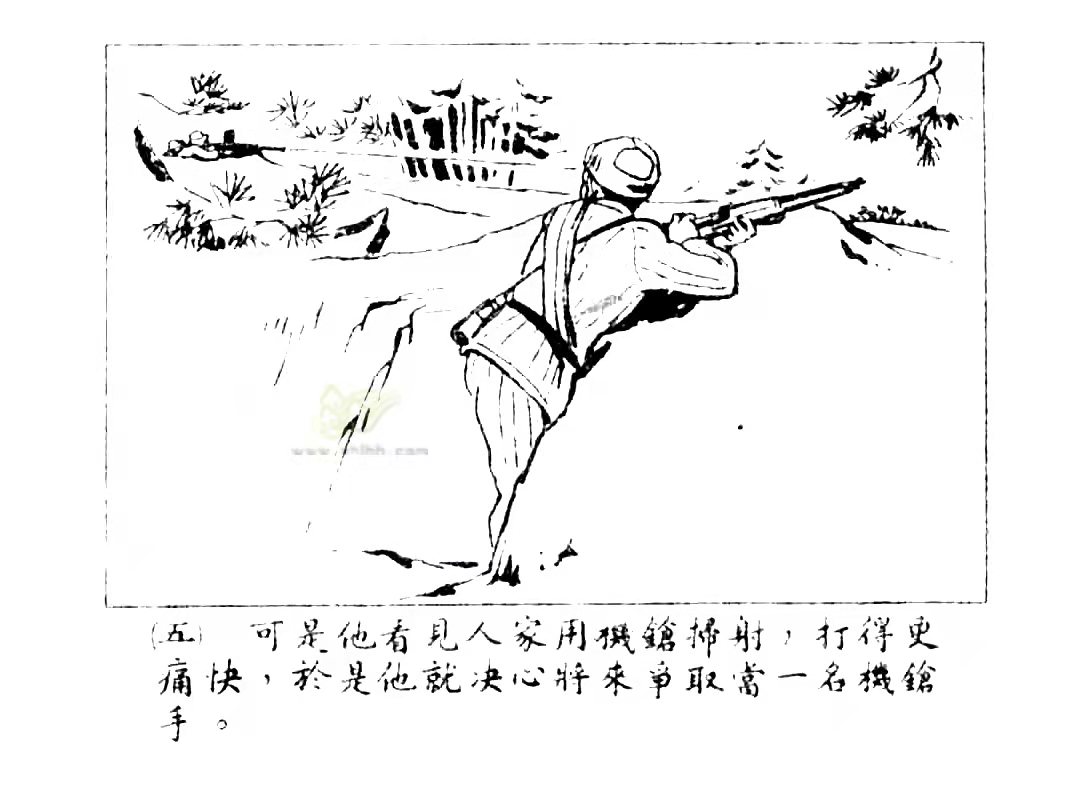 (五) 可是他看見人家用機鎗掃射，打得更
痛快，於是他就决心將來爭取當一名機鎗
手。